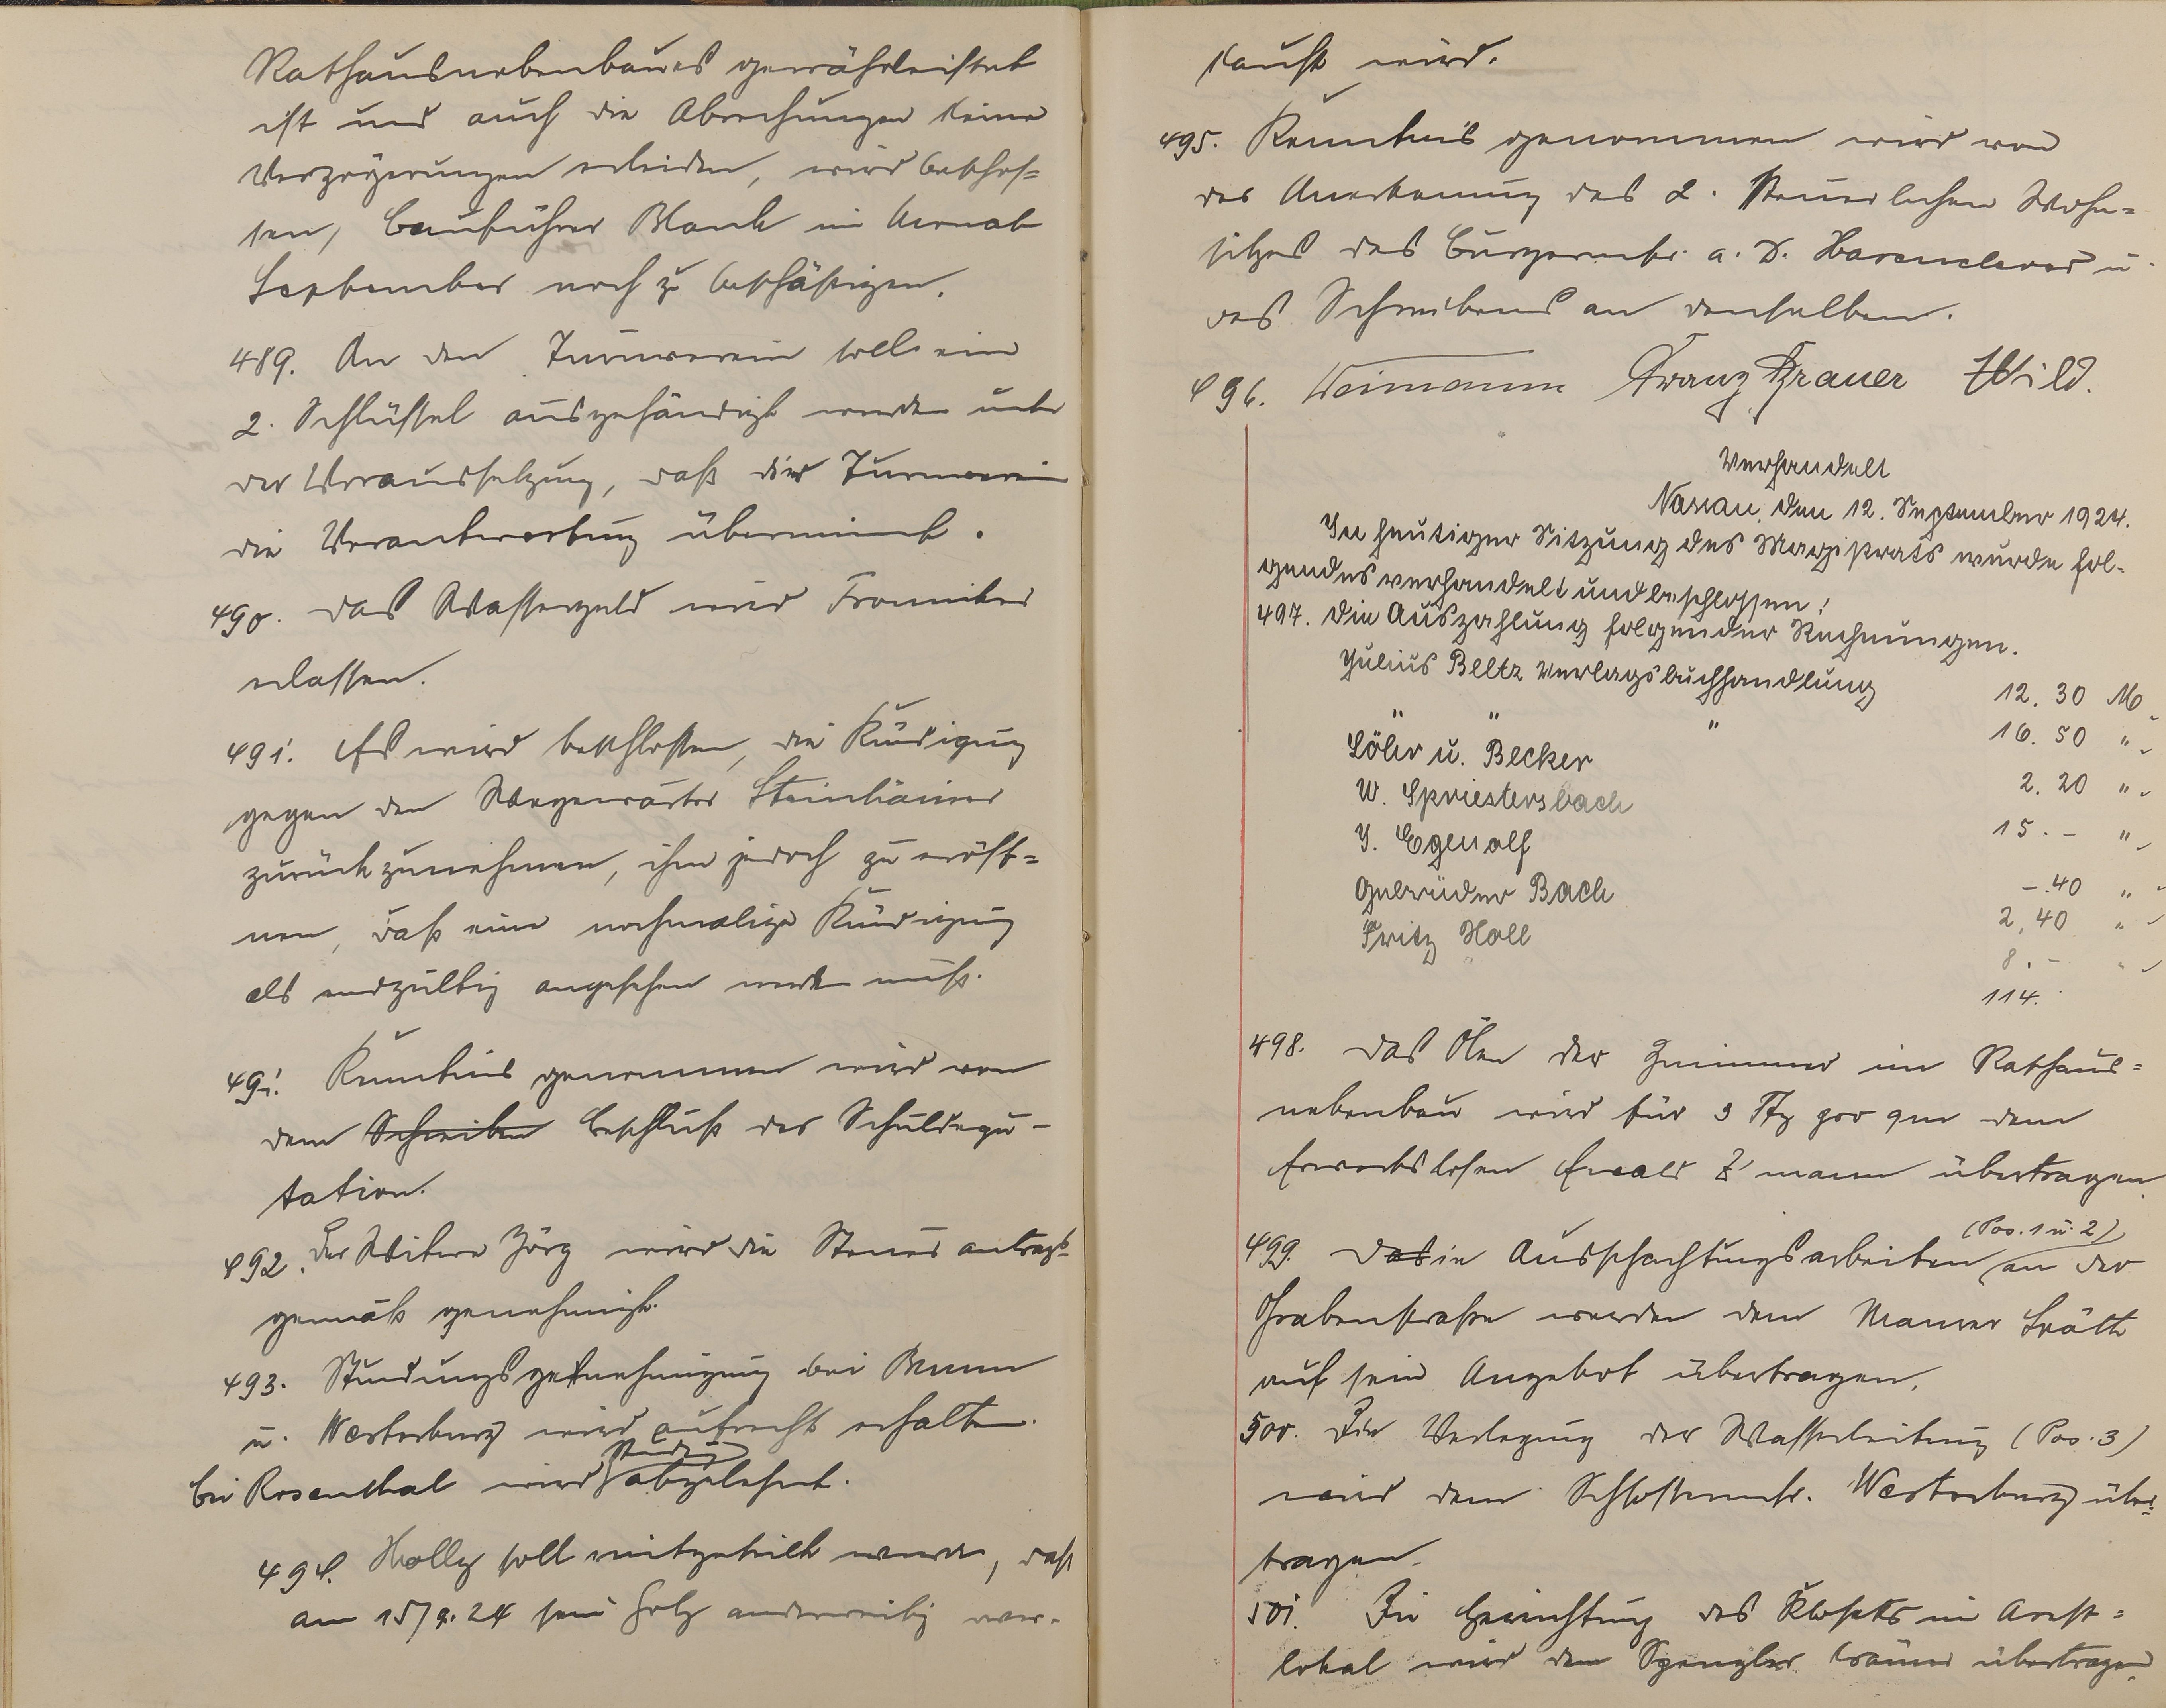 Rathausnebenbaues gewährleistet
ist und auch die Abrechungen keine
Verzögerungen erleiden, wird beschlos=
sen, Bauführer Blank im Monat
September noch zu beschäftigen.
489. An den Turnverein soll ein
2. Schlüssel ausgehändigt werden unter
der Voraussetzung, daß der Turnverein
die Verantwortung übernimmt.
490. Das Wassergeld wird
erlassen.
491. Es wird beschlossen, die Kündigung
gegen den Wegewärter Steinhäuser
zurückzunehmen, ihm jedoch zu eröff=
nen, daß eine nochmalige Kündigung
als endgültig angesehen werden muß.
491. Kenntnis genommen wird von
dem Schreiben Beschluß der Schuldepu-
tation.
492. Der Witwe Jörg wird die Steuer antrags=
gemäß genehmigt.
493. Stundungsgenehmigung bei Baum
u. Westerburg wird aufrecht erhalten.
bei Rosenthal wird Stundung abgelehnt.
494. Holly soll mitgeteilt werden, daß
am 15/9.24 sein Holz anderweitig ver-
kauft wird.
495. Kenntnis genommen wird von
der Anerkennung des 2. steuerlichen Wohn=
sitzes des Bürgermstr. a. D. Hasenclever u.
des Schreibens an denselben.
496. Weimann Franz Brauer Wild.
Verhandelt
Nassau, den 12. September 1924.
In heutiger Sitzung des Magistrats wurde fol-
gendes verhandelt und beschlossen:
497. Die Auszahlung folgender Rechnungen.
Julius Beltz Verlagsbuchhandlung 12.30 M
" " " 16.50 "
Löhr u. Becker 2.20 "
W. Spriestersbach 15.- "
J. Egenolf -.40 "
Gebrüder Bach 2,40 "
Fritz Holl 8.- "
114.
498. Das Ölen der Zimmer im Rathaus=
nebenbau wird für 3 Pfg pro qm dem
Erwerbslosen Ewald übertragen.
499. Dasie Ausschachtungsarbeiten (Pos. 1 u. 2) an der
Grabenstraße werden dem Maurer
auf sein Angebot übertragen.
500. Die Verlegung der Wasserleitung (Pos. 3)
wird dem Schlossermstr. Westerburg über=
tragen.
501. Die Herrichtung des Klosetts im Arest=
lokal wird dem Spengler übertragen.